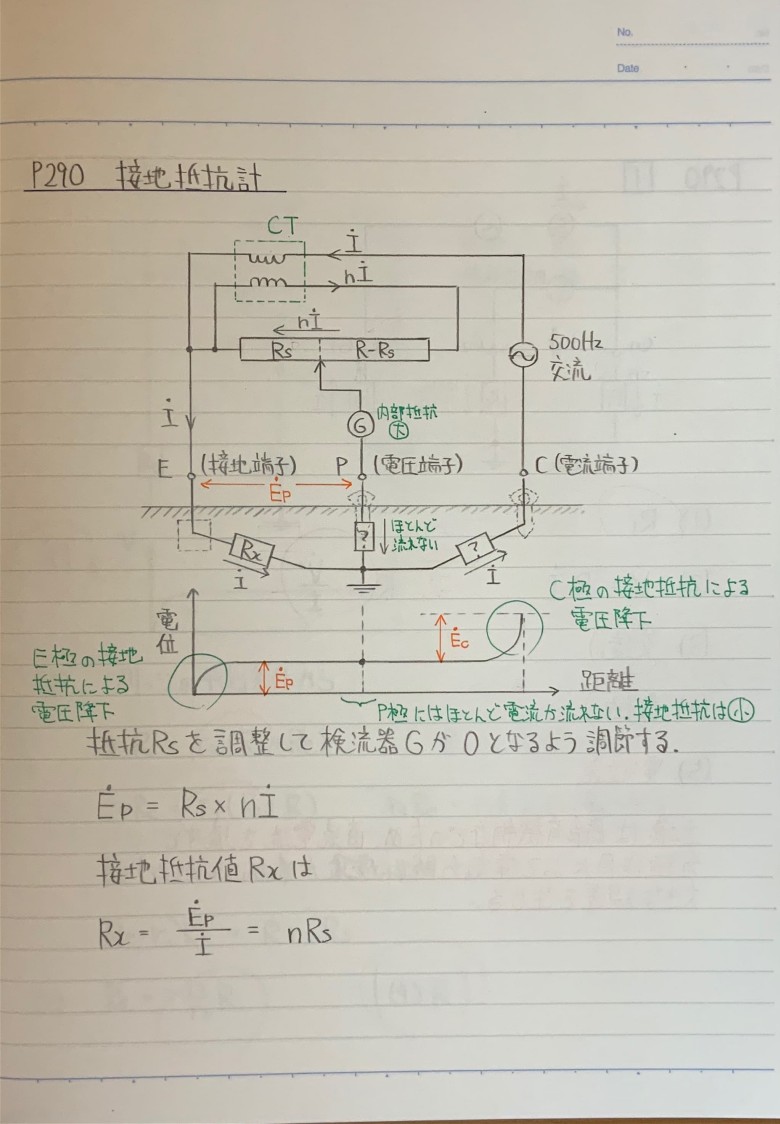 No.
Date
P290 接地抵抗計
CT
İ
nİ
nİ
Rs
R-Rs
500Hz
交流
İ
G
内部抵抗
大
E (接地端子)
P (電圧端子)
C (電流端子)
Ėp
Rx
?
ほとんど
流れない
?
İ
İ
C極の接地抵抗による
電圧降下
電位
Ėc
E極の接地
抵抗による
電圧降下
Ėp
距離
P極にはほとんど電流が流れない.接地抵抗は小
抵抗Rsを調整して検流器Gが0となるよう調節する.
Ėp = Rs × nİ
接地抵抗値Rxは
Rx = Ėp/İ = nRs